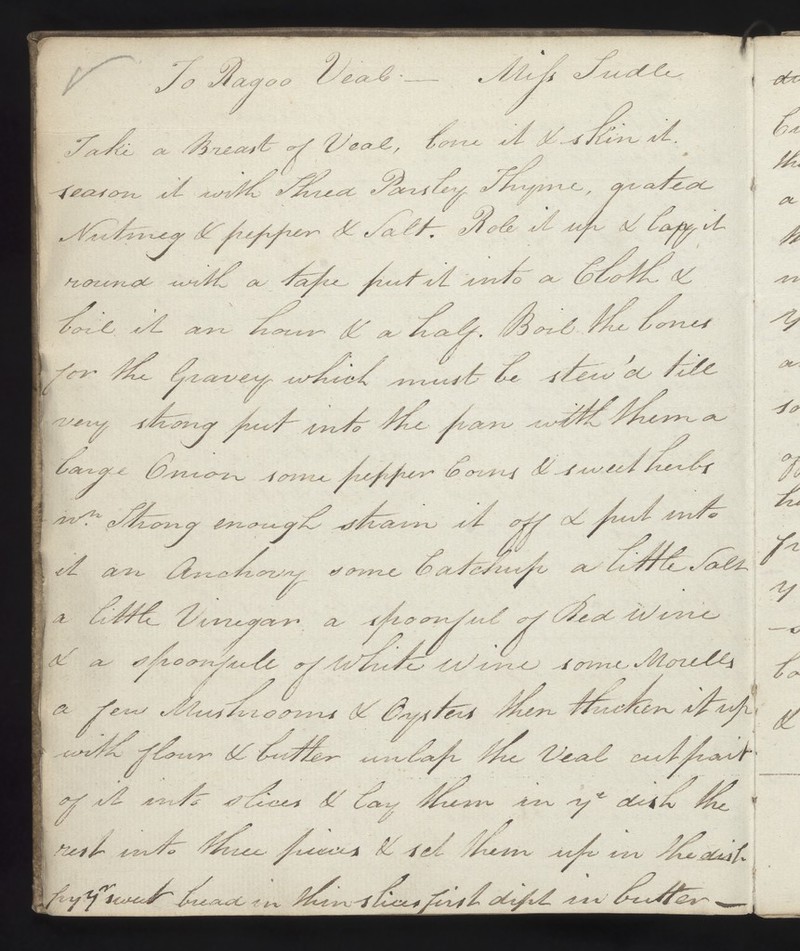 To Ragoo Veal — Miss Tudle
Take a Breast of Veal, bone it & skin it.
season it with Shred Parsley Thyme, grated
Nutmeg & pepper & Salt. Role it up & lap it
round with a tape put it into a Cloth &
boil it an hour & a half. Boil the bones
for the Gravey which must be stew'd till
very strong put into the pan with them a
large Onion some pepper Corns & sweet herbs
wn. Strong enough strain it off & put into
it an Anchovy some Catchup a little Salt
a little Vinegar a spoonful of Red Wine
& a spoonfull of White Wine some Morells
a few Mushrooms & Oysters then thicken it up
with flour & butter unlap the Veal cut part
of it into slices & lay them in ye dish the
rest into three pieces & set them up in the dish
fry yr sweet bread in thin slices first dipt in butter —